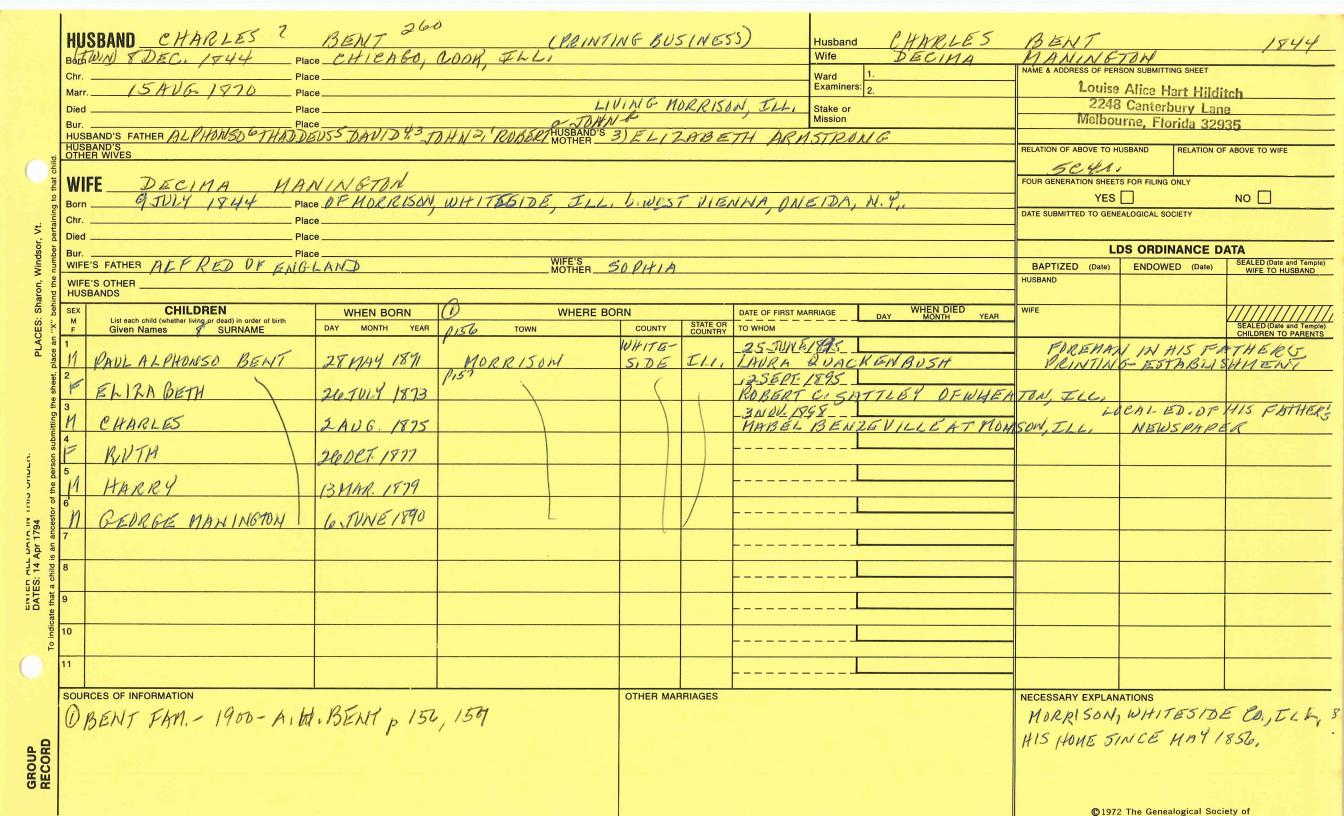 HUSBAND CHARLES 7 BENT 260 (PRINTING BUSINESS)
Born (TWIN) 8 DEC. 1844 Place CHICAGO, COOK, ILL.
Chr. Place
Marr. 15 AUG 1870 Place
Died Place LIVING MORRISON, ILL.
Bur. Place
HUSBAND'S FATHER ALPHONSO 6 THADDEUS 5 DAVID 4,3 JOHN 2, ROBERT HUSBAND'S MOTHER 3) ELIZABETH ARMSTRONG
HUSBAND'S OTHER WIVES
Husband CHARLES BENT 1844
Wife DECIMA MANINGTON
Ward Examiners: 1.
2.
Stake or Mission
NAME & ADDRESS OF PERSON SUBMITTING SHEET
Louise Alice Hart Hilditch
2248 Canterbury Lane
Melbourne, Florida 32935
RELATION OF ABOVE TO HUSBAND RELATION OF ABOVE TO WIFE
FOUR GENERATION SHEETS FOR FILING ONLY
YES NO
DATE SUBMITTED TO GENEALOGICAL SOCIETY
WIFE DECIMA MANINGTON
Born 9 JULY 1844 Place OF MORRISON, WHITESIDE, ILL. b. WEST VIENNA, ONEIDA, N.Y.
Chr. Place
Died Place
Bur. Place
WIFE'S FATHER ALFRED OF ENGLAND WIFE'S MOTHER SOPHIA
WIFE'S OTHER HUSBANDS
LDS ORDINANCE DATA
BAPTIZED (Date) ENDOWED (Date) SEALED (Date and Temple) WIFE TO HUSBAND
HUSBAND
WIFE
SEALED (Date and Temple) CHILDREN TO PARENTS
SEX M F
CHILDREN
List each child (whether living or dead) in order of birth
Given Names 8 SURNAME
WHEN BORN
DAY MONTH YEAR
① WHERE BORN
p156 TOWN COUNTY STATE OR COUNTRY
DATE OF FIRST MARRIAGE
TO WHOM
WHEN DIED
DAY MONTH YEAR
1 M PAUL ALPHONSO BENT 28 MAY 1871 MORRISON WHITE-SIDE ILL. 25 JUNE 1895 LAURA QUACKENBUSH FOREMAN IN HIS FATHER'S PRINTING-ESTABLISHMENT
2 F ELIZABETH 26 JULY 1873 p157 12 SEPT. 1895 ROBERT C. SATTLEY OF WHEATON, ILL.
3 M CHARLES 2 AUG. 1875 3 NOV. 1898 MABEL BENZEVILLE AT ILL. LOCAL ED. OF HIS FATHER'S NEWSPAPER
4 F RUTH 26 OCT. 1877
5 M HARRY 13 MAR. 1879
6 M GEORGE MANINGTON 6 JUNE 1890
7
8
9
10
11
SOURCES OF INFORMATION
① BENT FAM. - 1900 - A.H. BENT p 156, 157
OTHER MARRIAGES
NECESSARY EXPLANATIONS
MORRISON, WHITESIDE CO., ILL,
HIS HOME SINCE MAY 1856.
©1972 The Genealogical Society of
PLACES: Sharon, Windsor, Vt.
DATES: 14 Apr 1794
To indicate that a child is an ancestor of the person submitting the sheet, place an "X" behind the number pertaining to that child.
GROUP RECORD